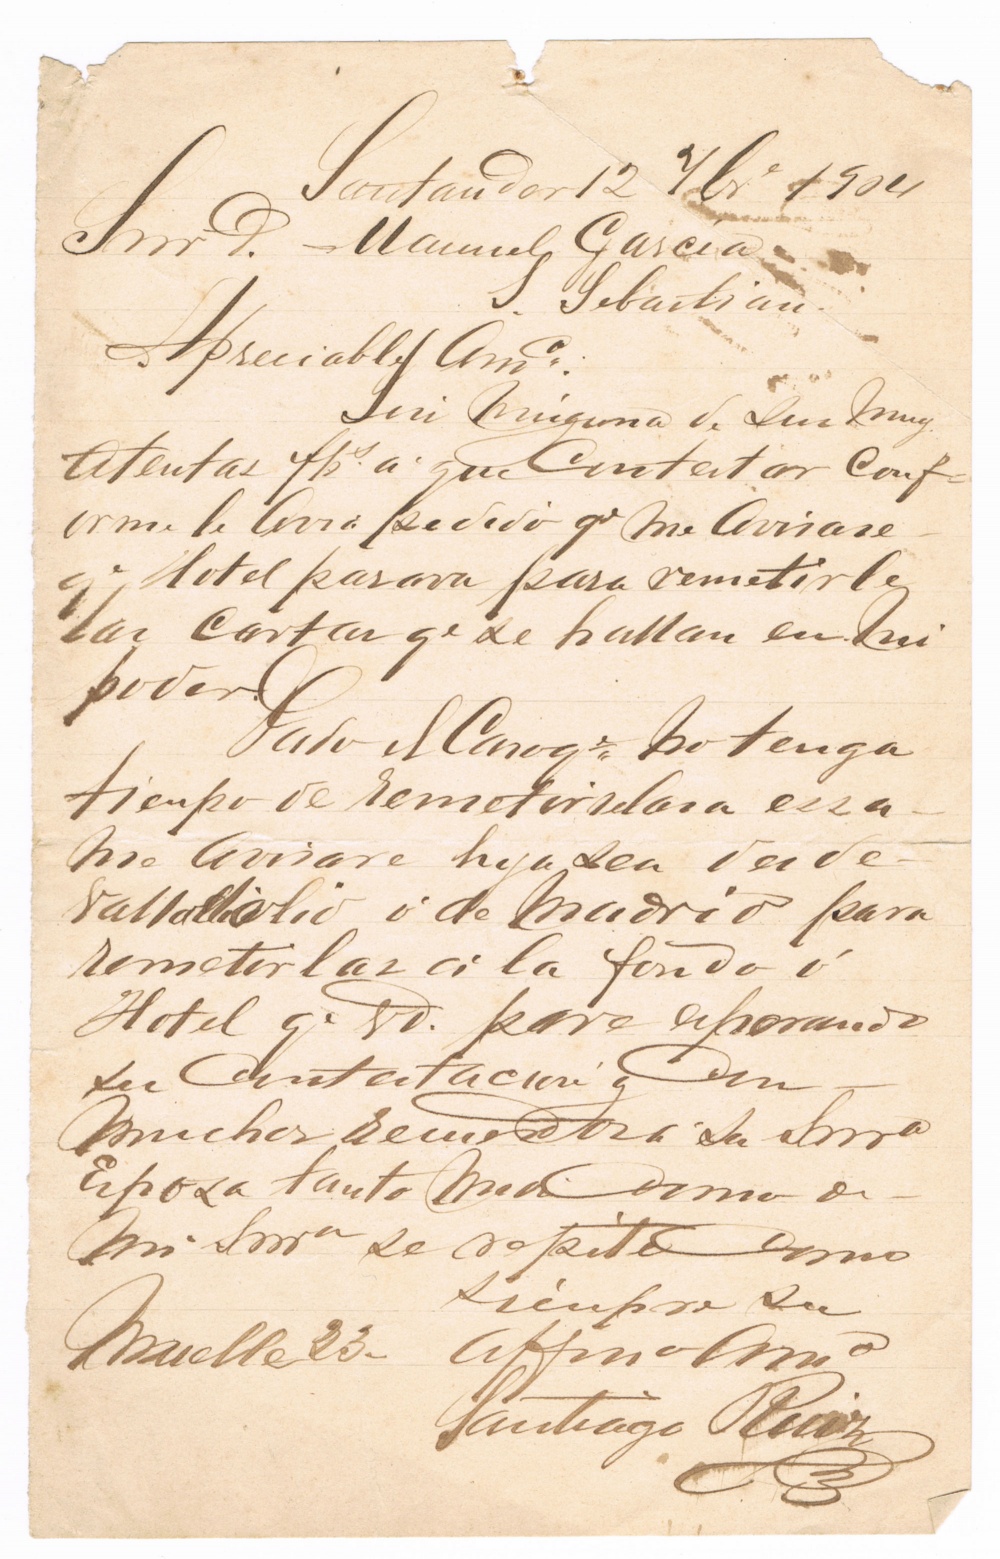 Santander 12 7bre 1904
Snr D. Manuel Garcia
S. Sebastian.
Apreciable Amo.
Sin ninguna de sus muy
atentas fhs. a que Contestar Conf-
orme le avia pedido qe me avisase
qe Hotel parava para remetirle
las Cartas qe se hallan en mi
poder.
Dado el Caso qe no tenga
tiempo de remetirselas a essa
me avisare hya sea desde
Valladolid ó de Madrid para
remetirlas a la fonda ó
Hotel qe Vd. pare esperando
su Contestacion y Con
muchos recuerdos a su Snra
Esposa tanto mios Como de
mi Snra se repite Como
siempre su
affmo Amo
Muelle 23-
Santiago Ruiz